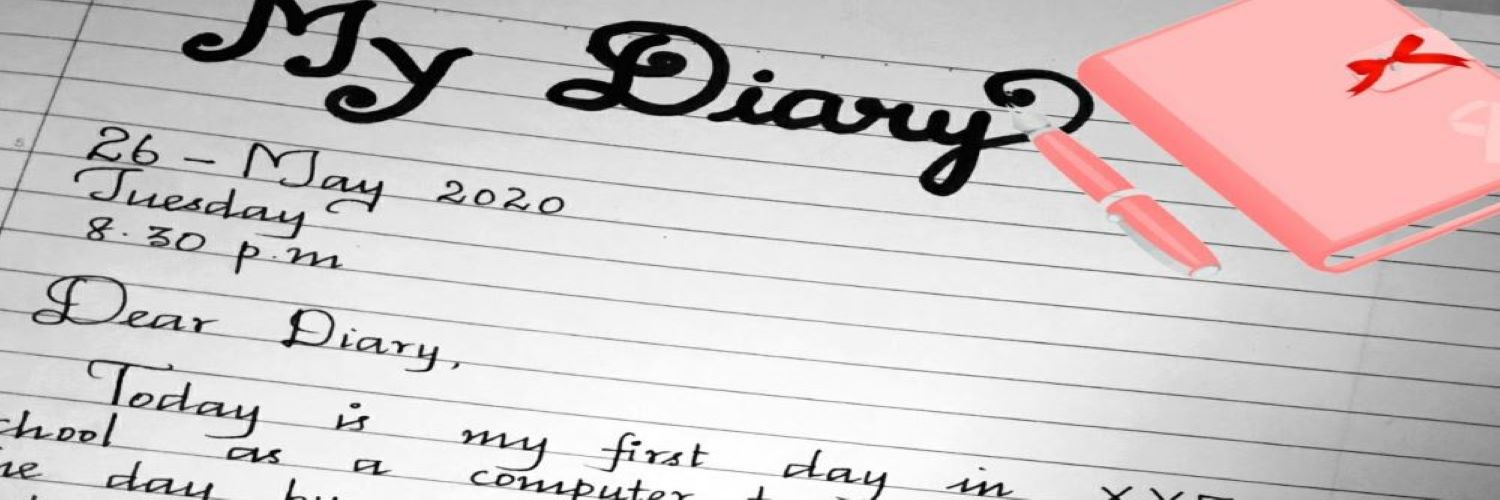 My Diary
26 - May 2020
Tuesday
8.30 p.m
Dear Diary,
Today is my first day in
as a computer
day